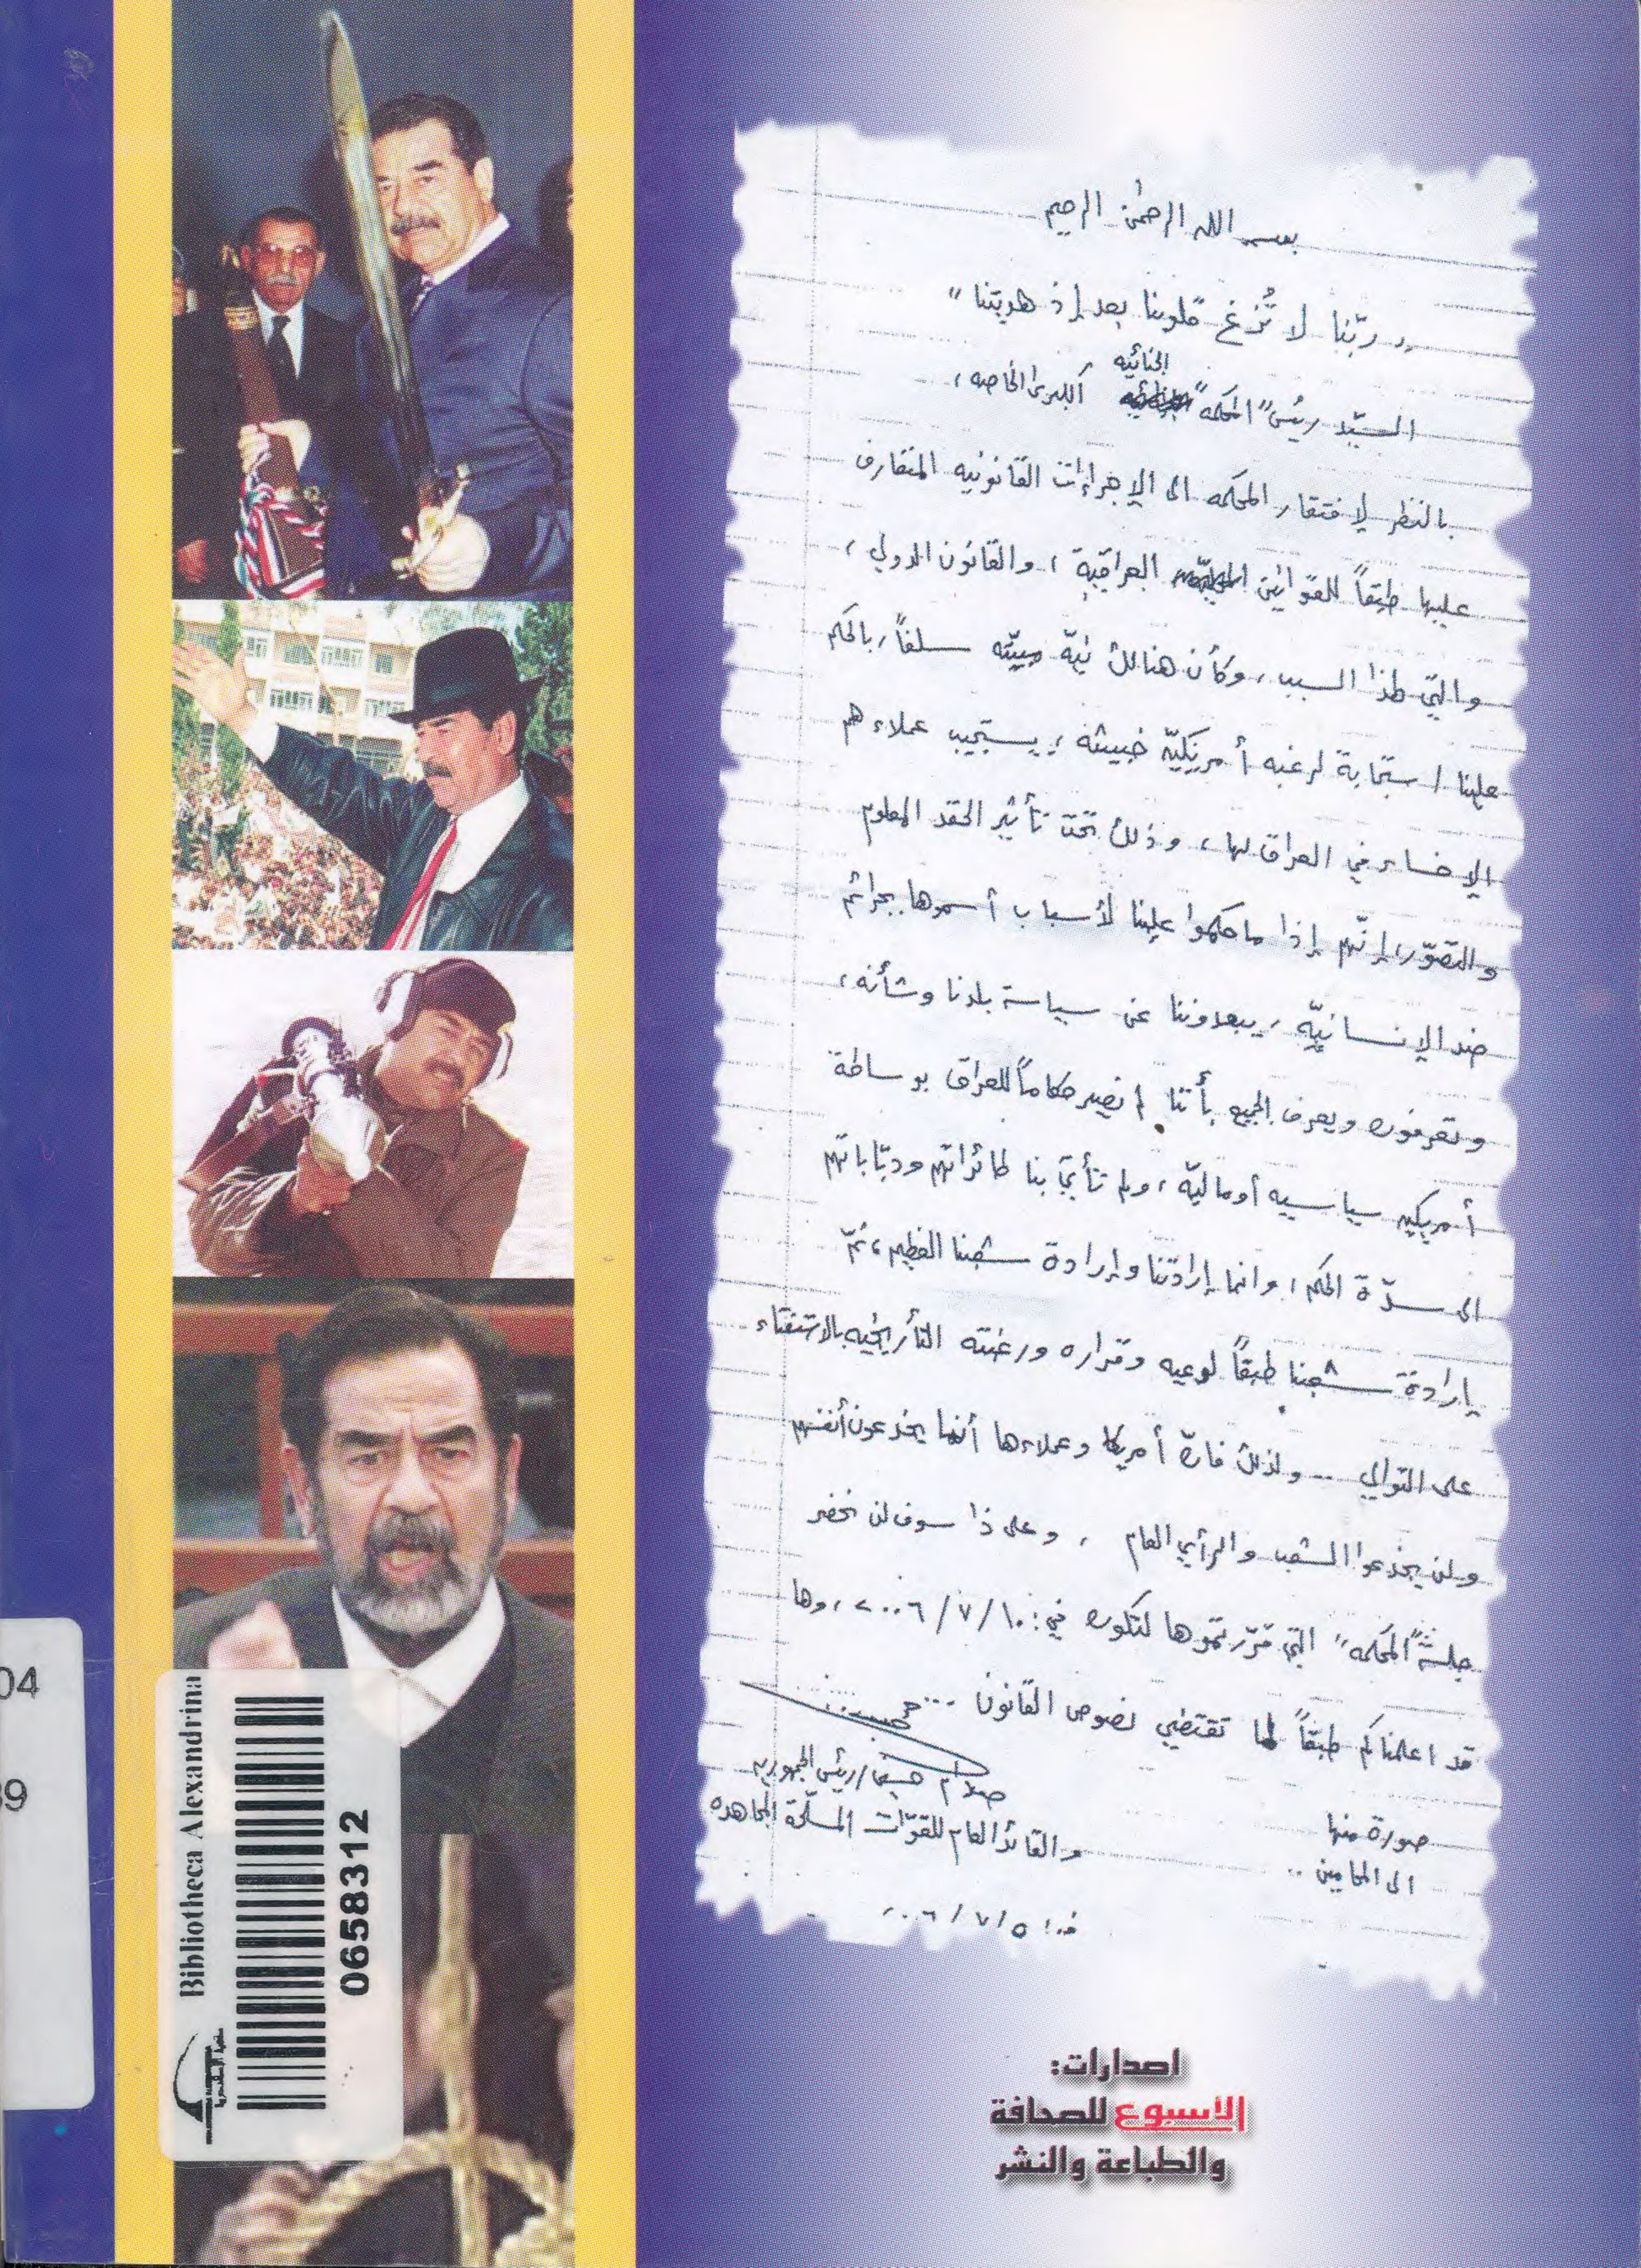 بسم الله الرحمن الرحيم
"ربّنا لا تُزغ قلوبنا بعد إذ هديتنا"
الجنائيه
السيّد رئيس "المحكمه" الكبرى الخاصه،
بالنظر لافتقار المحكمه الى الإجراءات القانونيه المتعارف
عليها طبقاً للقوانين العراقية، والقانون الدولي،
والتي لهذا السبب، وكأن هنالك نيّة مبيّته سلفاً، بالحكم
علينا إستجابة لرغبه أمريكيّة خبيثه، يستجيب عملاءهم
الاخساء في العراق لها، وذلك تحت تأثير الحقد المعلوم
والتصوّر، إنّهم إذا ما حكموا علينا لأسباب أسموها بجرائم
ضد الإنسانيّه، يبعدوننا عن سياسة بلدنا وشأنه،
وتعرفون ويعرف الجميع بأننا لم نصير حكاماً للعراق بوساطة
أمريكيه سياسيه أو ماليّه، ولم تأتي بنا طائراتهم ودبّاباتهم
الى سدّة الحكم، وانما إرادتنا وإرادة شعبنا العظيم، ثمّ
إرادة شعبنا طبقاً لوعيه وقراره ورغبته التأريخيه بالاستفتاء
على التوالي .. ولذلك فان أمريكا وعملاءها أنما يخدعون أنفسهم
ولن يخدعوا الشعب والرأي العام ، وعلى ذا سوف لن نحضر
جلسة "المحكمه" التي قرّرتموها لتكون في: ١٠/٧/٢٠٠٦، وها
قد اعلمناكم طبقاً لما تقتضي نصوص القانون ...
صدام حسين/رئيس الجمهوريه
والقائد العام للقوّات المسلّحة المجاهده
صورة منها
الى المحامين ..
٥/٧/٢٠٠٦
اصدارات:
الاسبوع للصحافة
والطباعة والنشر
Bibliotheca Alexandrina
مكتبة الإسكندرية
0658312
04
39